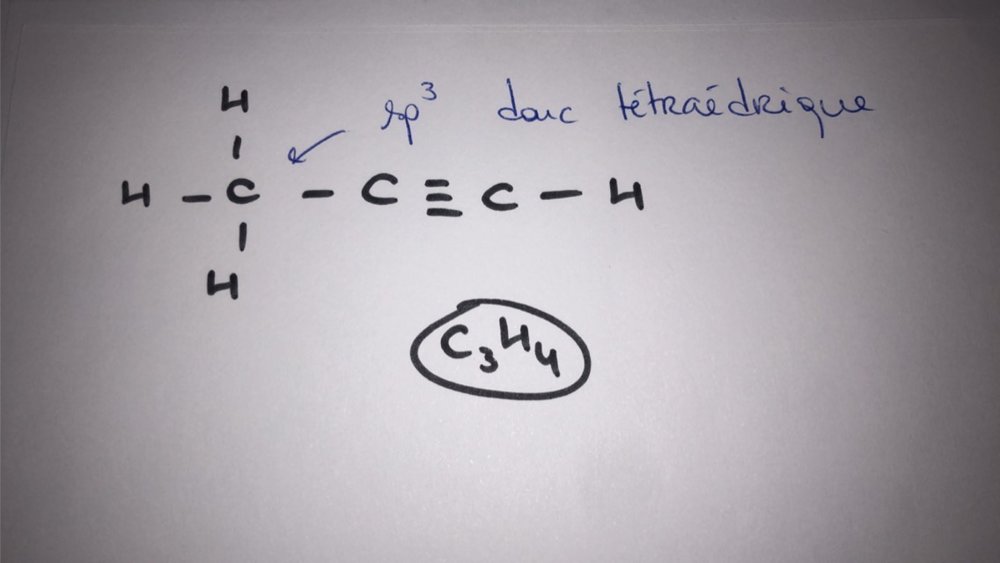 H
sp³ donc tétraédrique
H - C - C ≡ C - H
H
C₃H₄